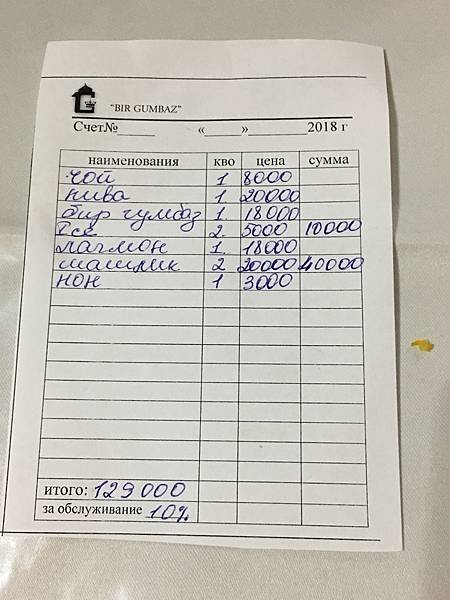 "BIR GUMBAZ"
Счет№______ «_____»________ 2018 г
наименования кво цена сумма
чой 1 8000
пива 1 20000
бир гумбаз 1. 18000
2. 5000 10000
лагмон 1. 18000
шашлик 2 20000 40000
нон 1 3000
итого: 129000
за обслуживание 10%